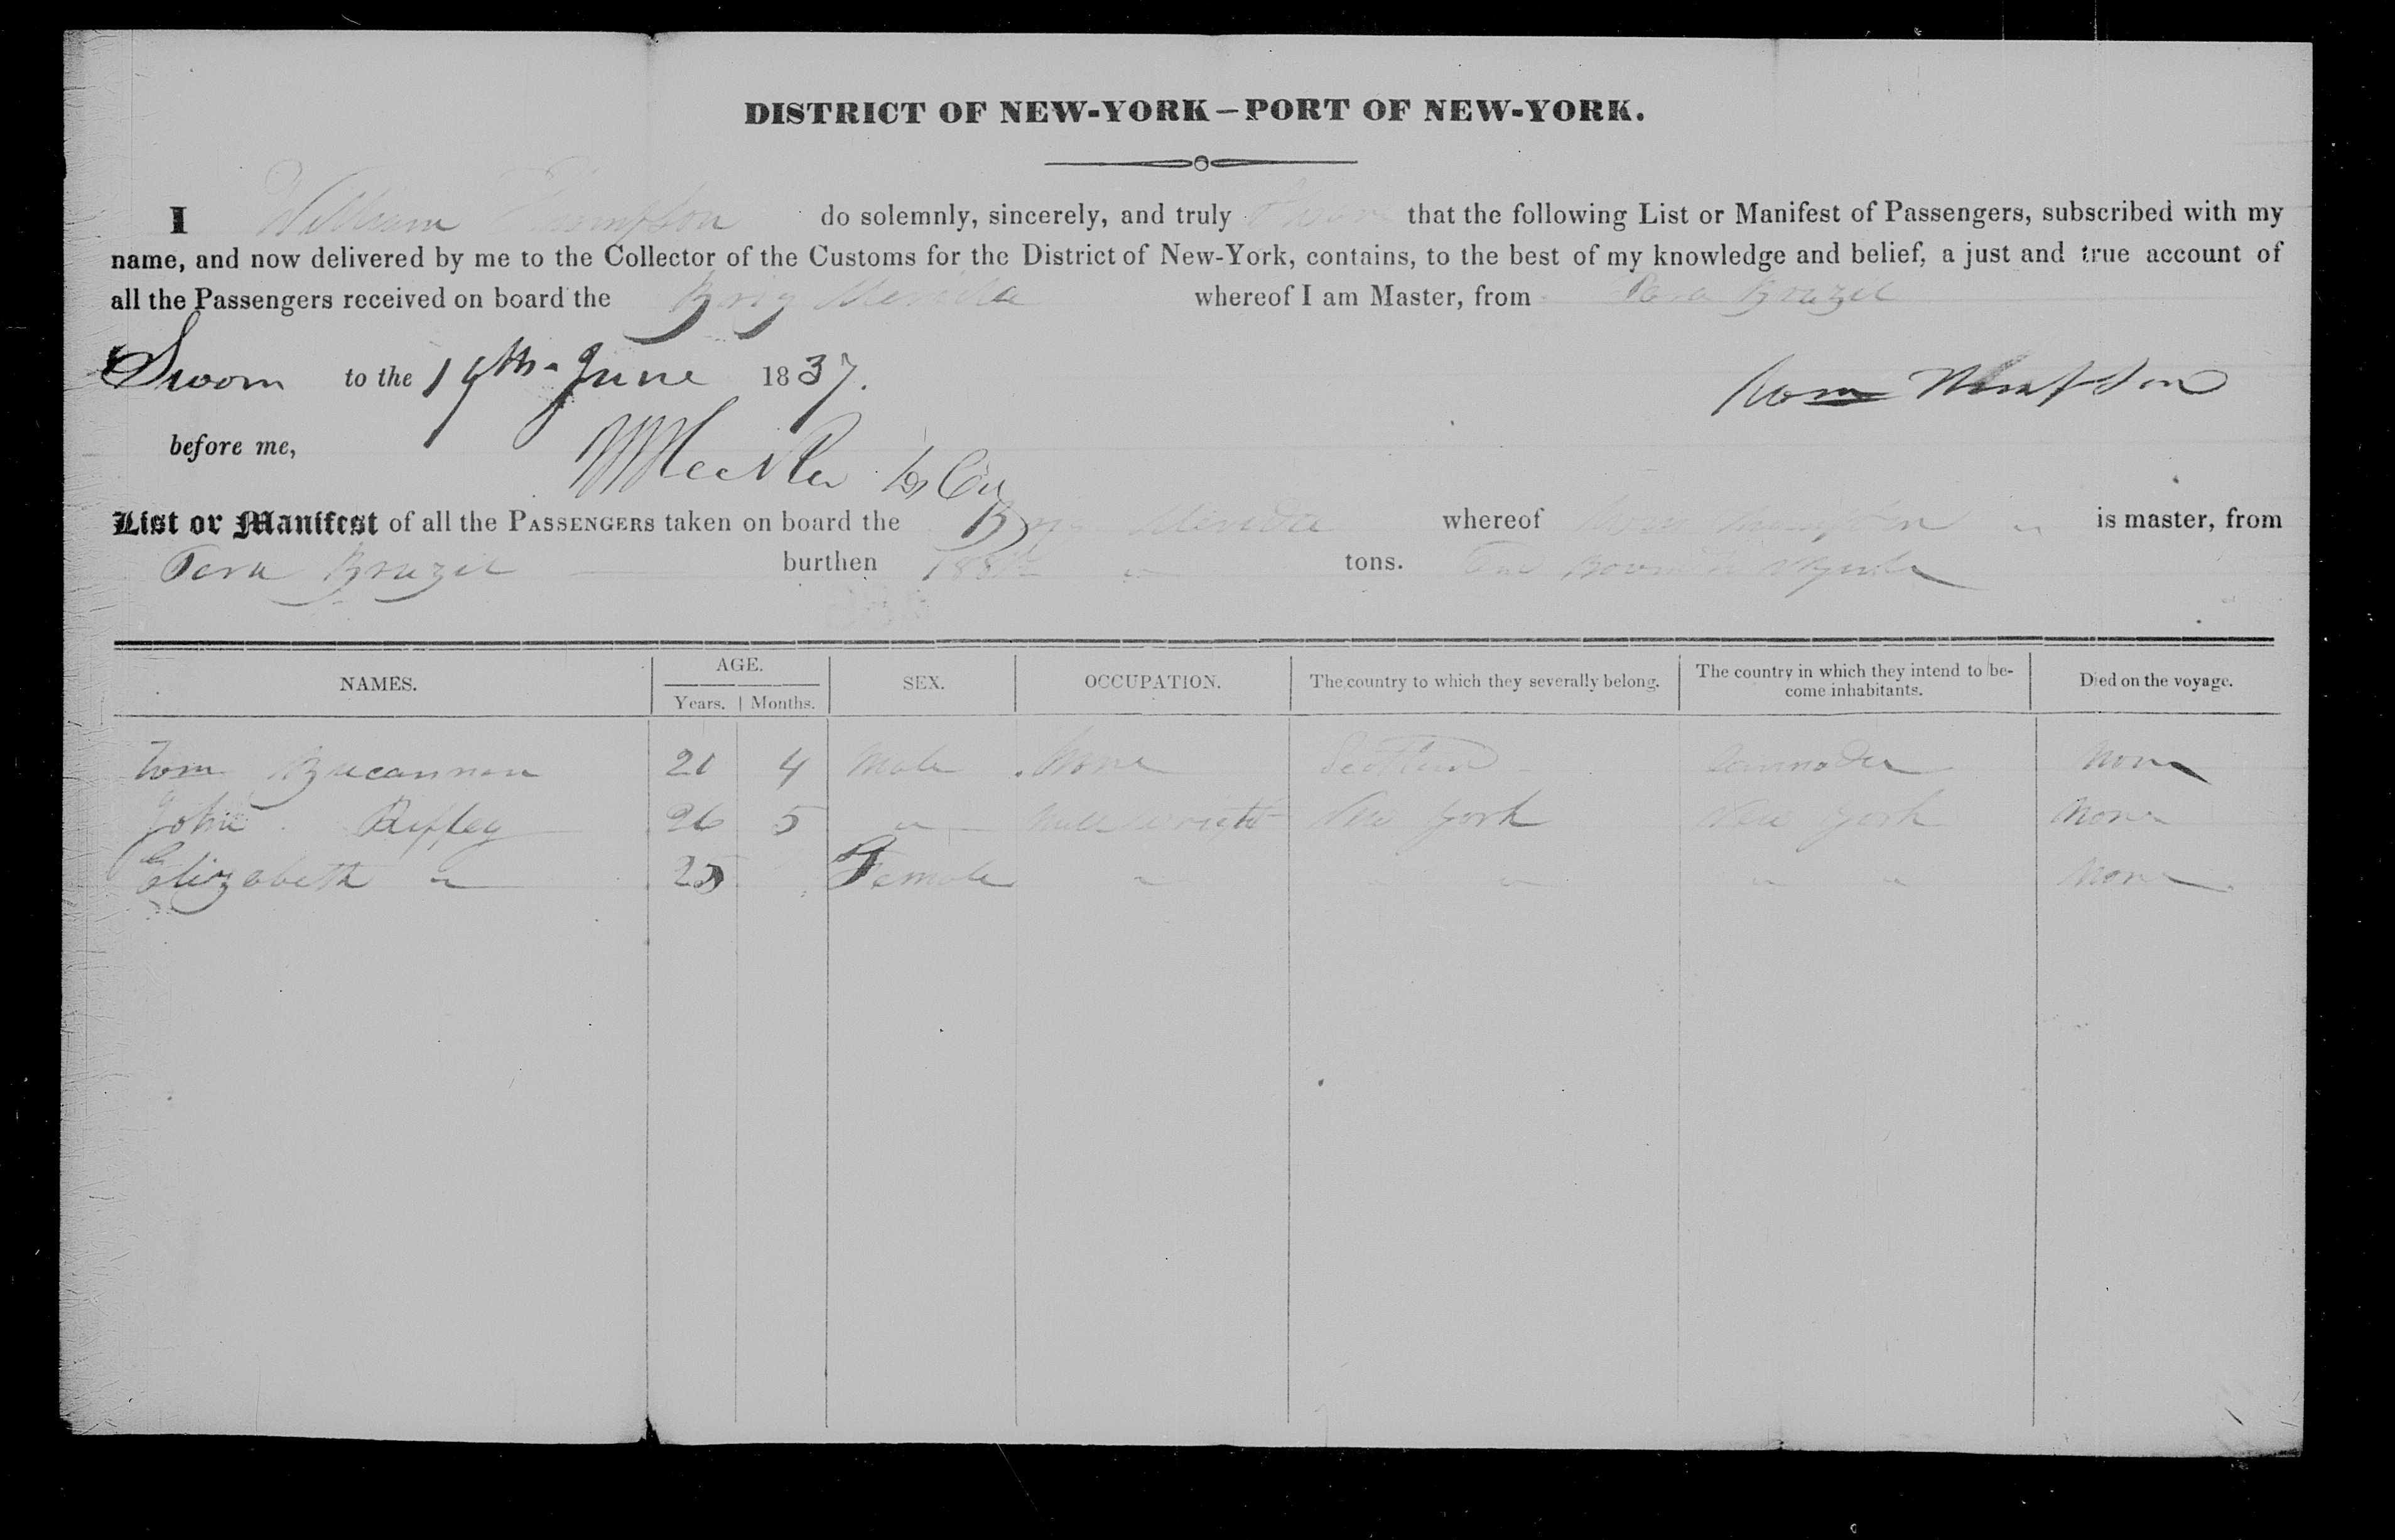 DISTRICT OF NEW-YORK—PORT OF NEW-YORK.
I William Thompson do solemnly, sincerely, and truly Swear that the following List or Manifest of Passengers, subscribed with my
name, and now delivered by me to the Collector of the Customs for the District of New-York, contains, to the best of my knowledge and belief, a just and true account of
all the Passengers received on board the Brig whereof I am Master, from Para Brazil
Sworn to the 19th June 1837. Thompson
before me,
List or Manifest of all the PASSENGERS taken on board the Brig whereof Thompson is master, from
Para Brazil burthen tons.
NAMES. AGE. SEX. OCCUPATION. The country to which they severally belong. The country in which they intend to become inhabitants. Died on the voyage.
Years. Months.
Bucannan 21 4 Male None Scotland None
John Ripley 26 5 " Mill wright New York New York None
Elizabeth " 25 Female " " " " " None